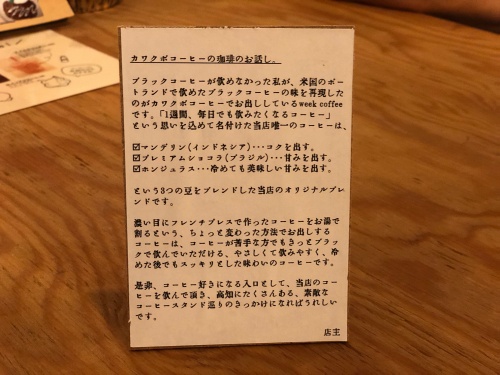 カワクボコーヒーの珈琲のお話し。
ブラックコーヒーが飲めなかった私が、米国のポー
トランドで飲めたブラックコーヒーの味を再現した
のがカワクボコーヒーでお出ししているweek coffee
です。「1週間、毎日でも飲みたくなるコーヒー」
という思いを込めて名付けた当店唯一のコーヒーは、
☑マンデリン(インドネシア)･･･コクを出す。
☑プレミアムショコラ(ブラジル)･･･甘みを出す。
☑ホンジュラス･･･冷めても美味しい甘みを出す。
という3つの豆をブレンドした当店のオリジナルブレ
ンドです。
濃い目にフレンチプレスで作ったコーヒーをお湯で
割るという、ちょっと変わった方法でお出しする
コーヒーは、コーヒーが苦手な方でもきっとブラッ
クで飲んでいただける、やさしくて飲みやすく、冷
めた後でもスッキリとした味わいのコーヒーです。
是非、コーヒー好きになる入口として、当店のコー
ヒーを飲んで頂き、高知にたくさんある、素敵な
コーヒースタンド巡りのきっかけになればうれしい
です。
店主